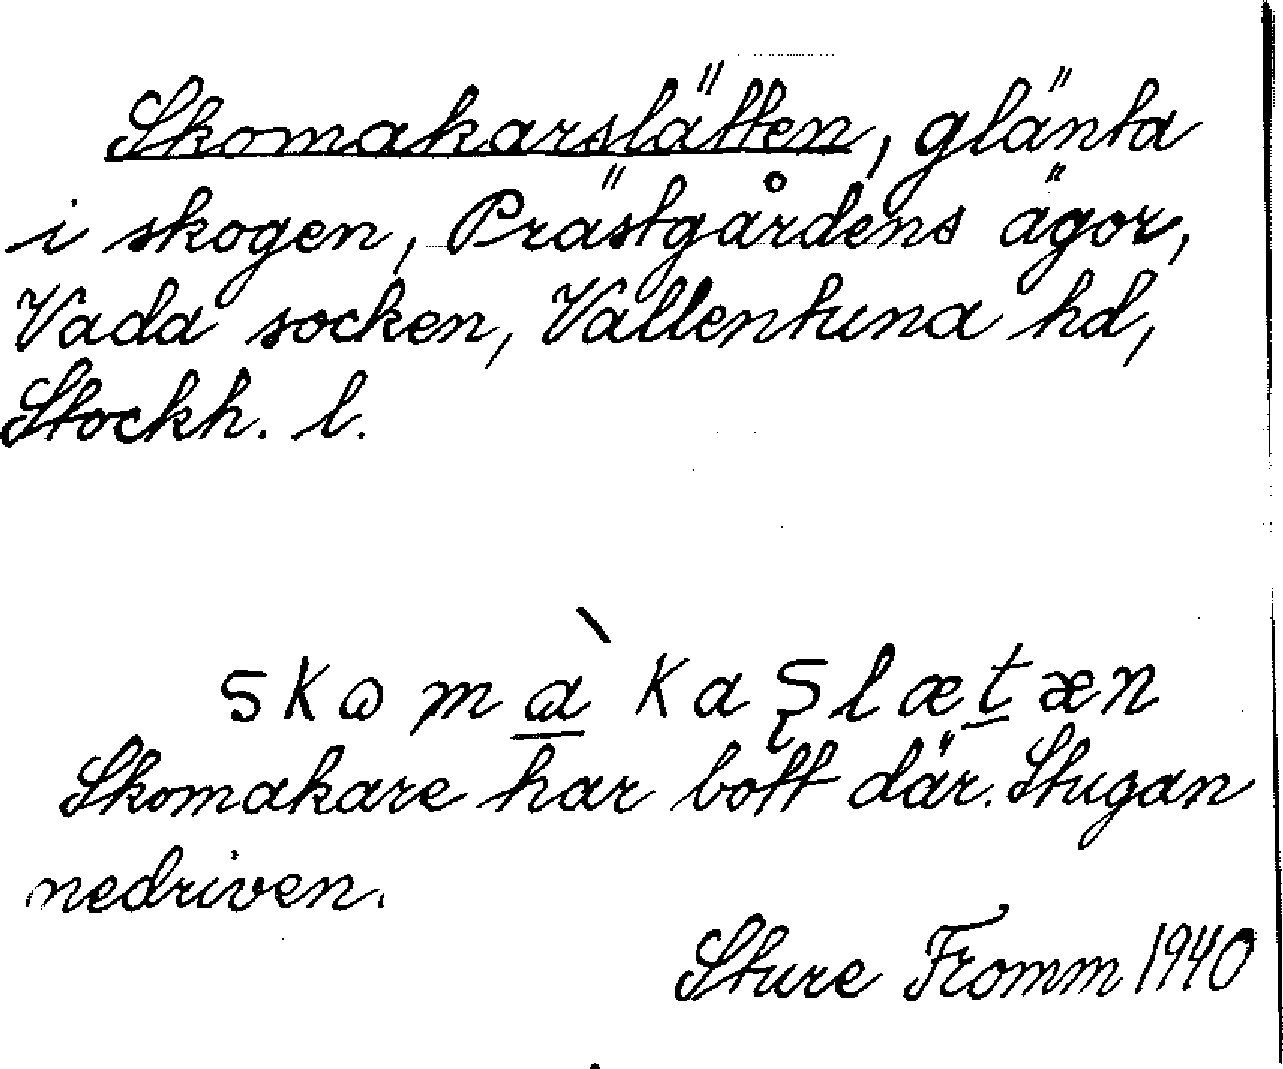 Skomakarslätten, glänta
i skogen, Prästgårdens ägor,
Vada socken, Vallentuna hd,
Stockh. l.
skωmɑ̀kaʂlætæn
Skomakare har bott där. Stugan
nedriven.
Sture Fromm 1940